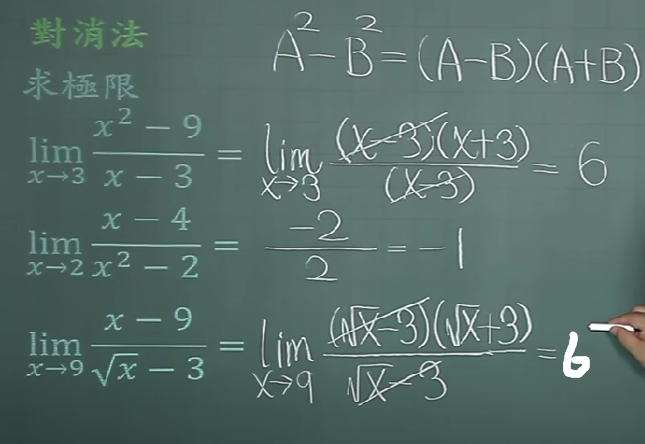 對消法
A² − B² = (A−B)(A+B)
求極限
lim x→3 (x² − 9)/(x − 3) = lim x→3 (x−3)(x+3)/(x−3) = 6
lim x→2 (x − 4)/(x² − 2) = −2/2 = −1
lim x→9 (x − 9)/(√x − 3) = lim x→9 (√x−3)(√x+3)/(√x−3) = 6